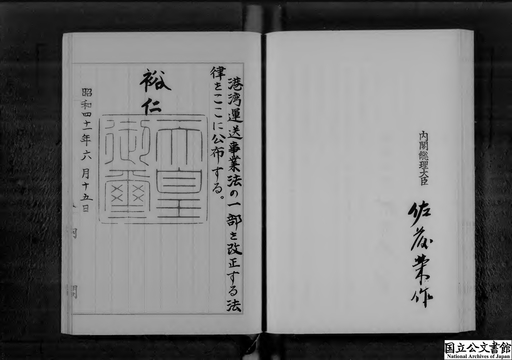 港湾運送事業法の一部を改正する法
律をここに公布する。
裕仁
天皇
御璽
昭和四十一年六月十五日
内閣総理大臣
佐藤栄作
国立公文書館
National Archives of Japan